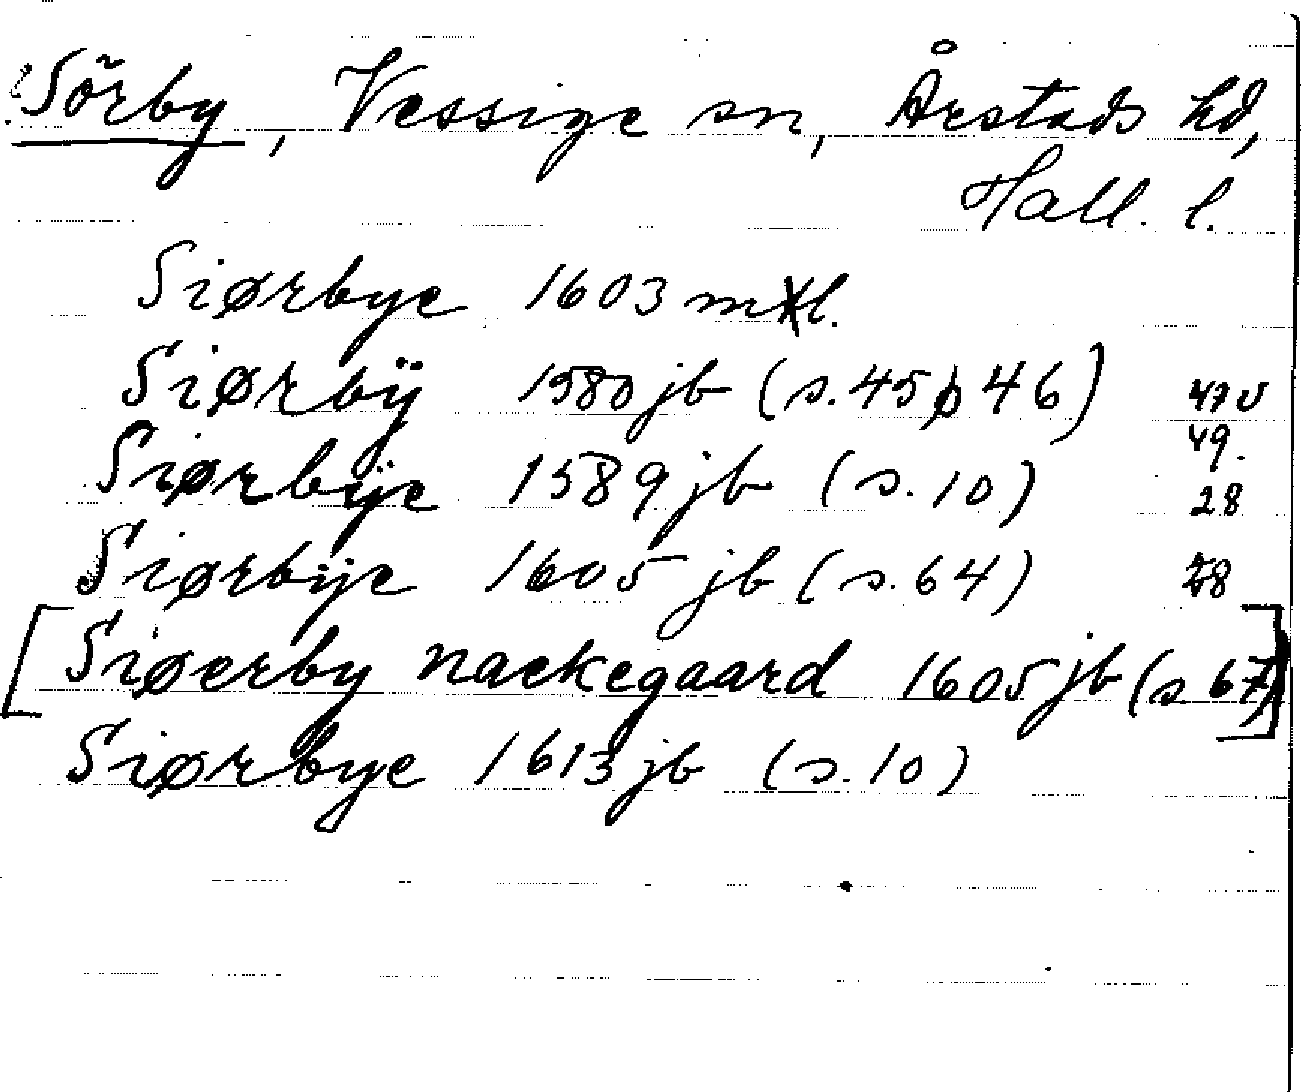 Sörby, Vessige sn, Årstads hd,
Hall. l.
Siørbye 1603 mtl.
Siørbÿ 1580 jb (s. 45 46) 47 v
49.
Siørbÿe 1589 jb (s. 10) 28
Siørbÿe 1605 jb (s. 64)
[Siøerby nackegaard 1605 jb (s 67)]
Siørbye 1613 jb (s. 10)